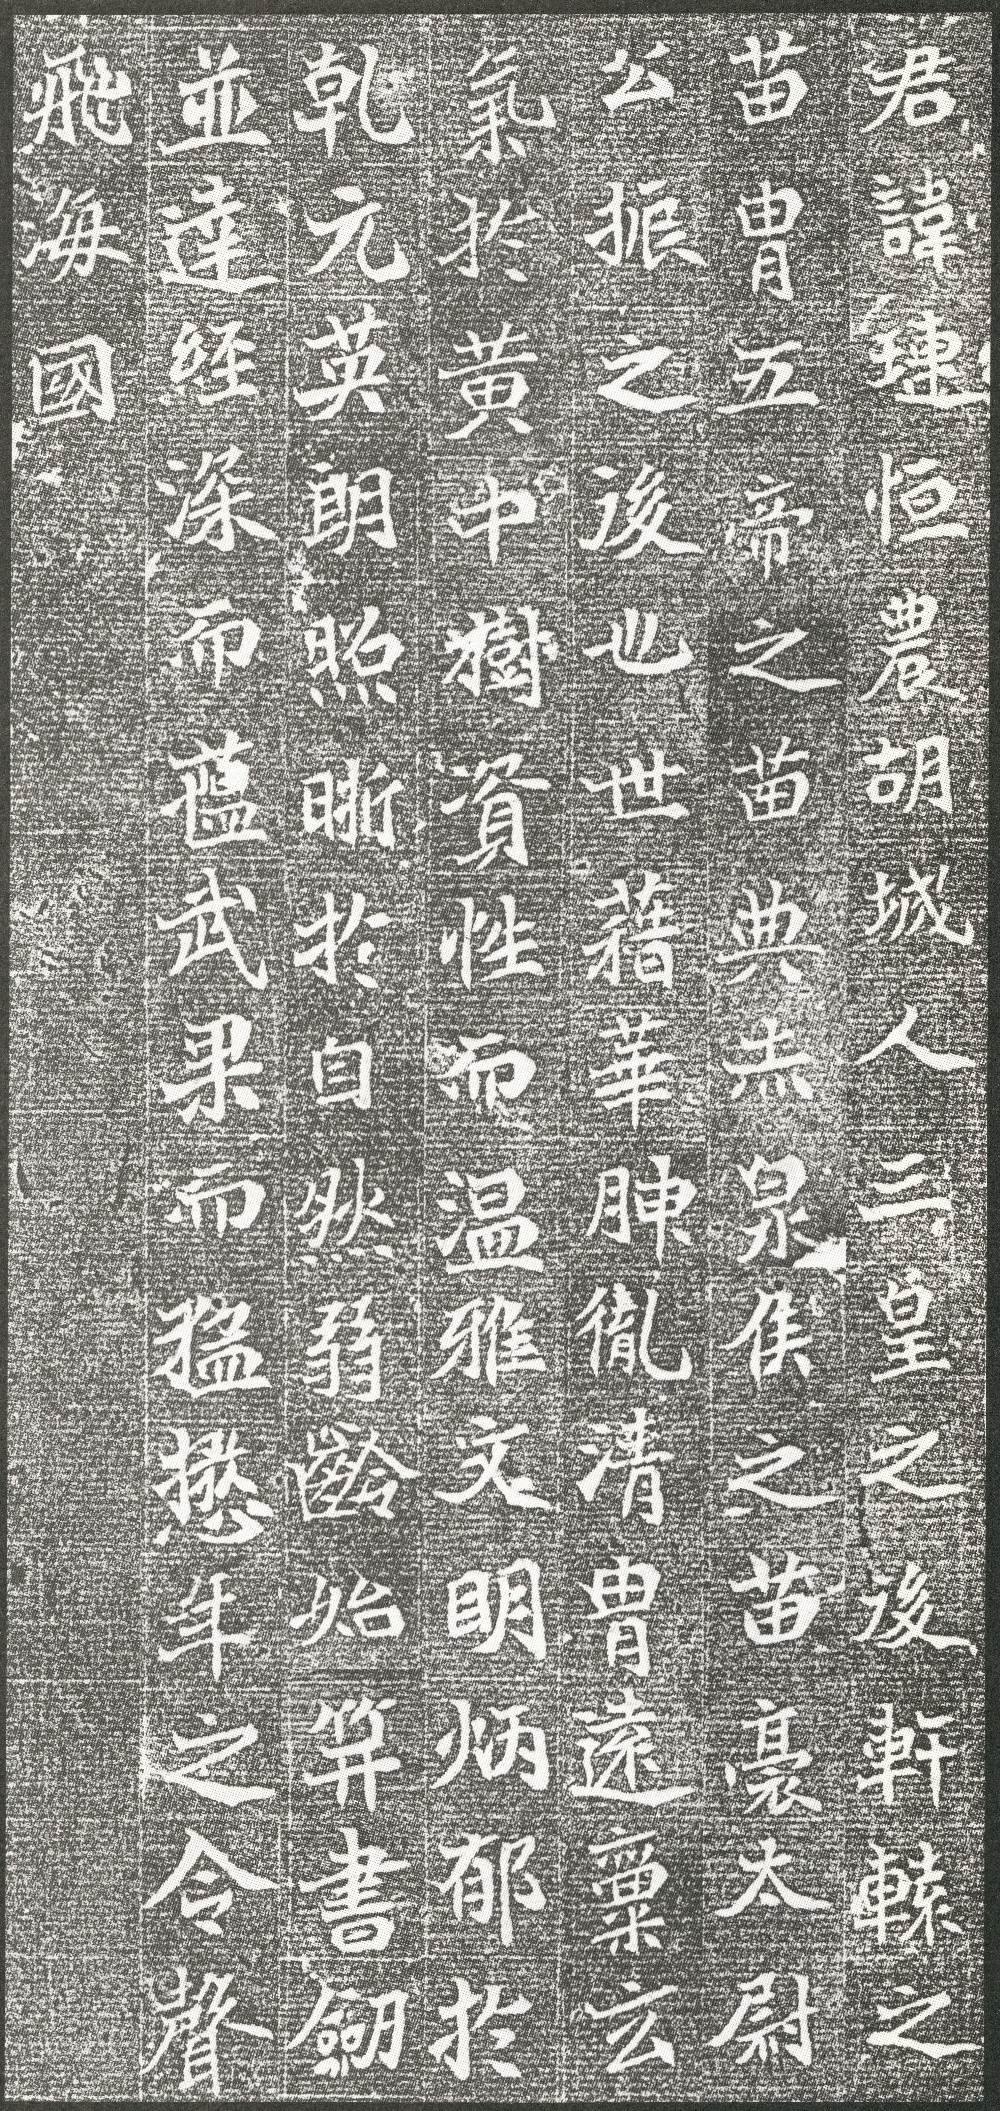 君諱璉恒農胡城人三皇之後軒轅之
苗曺五帝之苗典赤泉侯之苗裔太尉
公振之後也世藉華胂胤清曺遠稟玄
氣扵黃中樹資性而温雅文明炳郁扵
乾元英朗照晰扵自然弱齡始笄書劒
並達經深而藴武果而猛懋年之令聲
飛海國